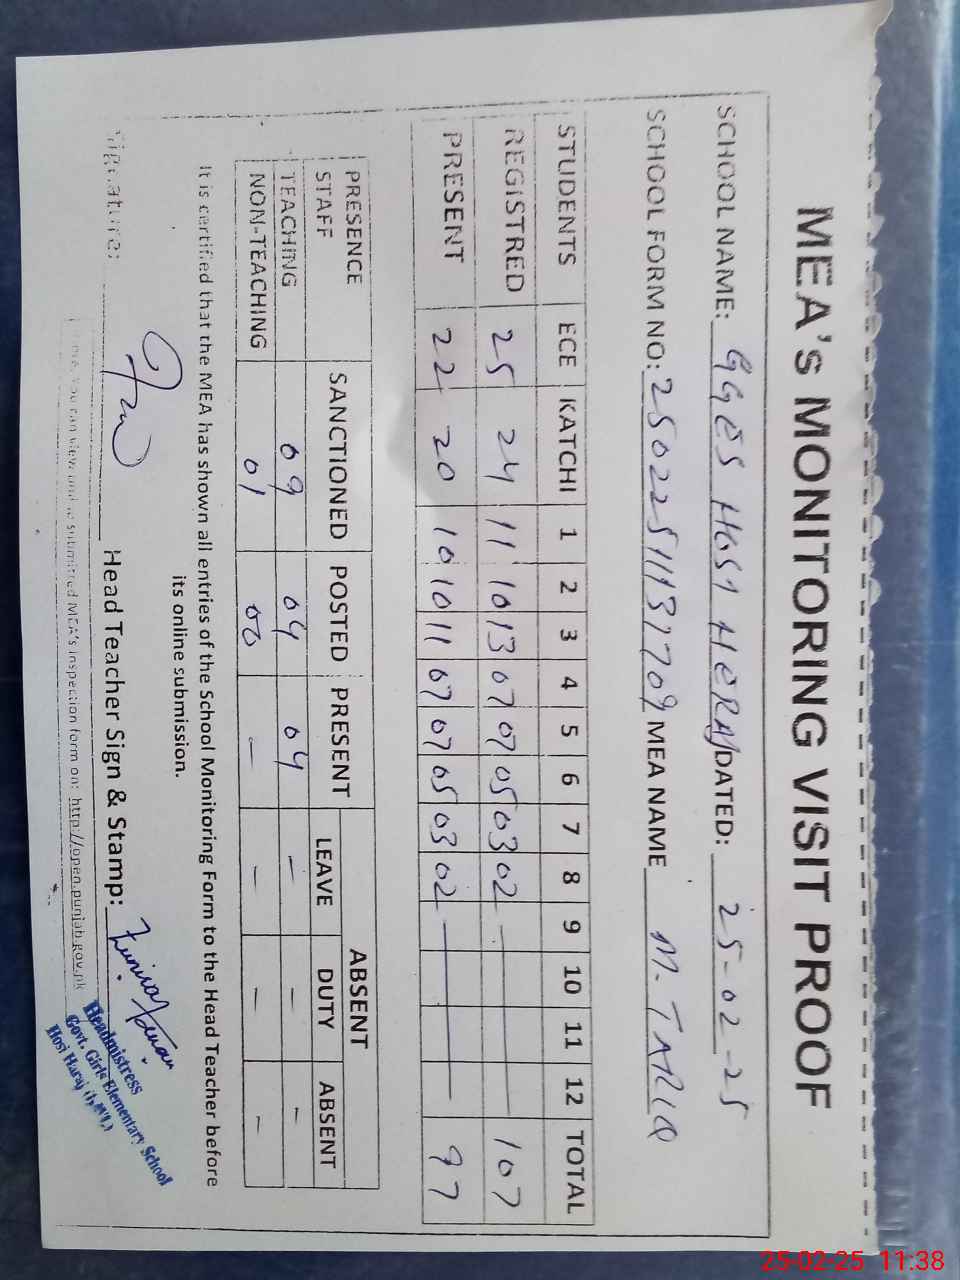 MEA's MONITORING VISIT PROOF
SCHOOL NAME: GGES HOSI HERAJ DATED: 25-02-25
SCHOOL FORM NO: 25022511137709 MEA NAME M. TARIQ
STUDENTS ECE KATCHI 1 2 3 4 5 6 7 8 9 10 11 12 TOTAL
REGISTRED 25 24 11 10 13 07 07 05 03 02 — 107
PRESENT 22 20 10 10 11 07 07 05 03 02 — 97
PRESENCE STAFF SANCTIONED POSTED PRESENT ABSENT
LEAVE DUTY ABSENT
TEACHING 09 04 04 — — —
NON-TEACHING 01 00 — — — —
It is certified that the MEA has shown all entries of the School Monitoring Form to the Head Teacher before
its online submission.
Signature: Head Teacher Sign & Stamp:
Headmistress
Govt. Girls Elementary School
Hosi Haraj
you can view and submitted MEA's inspection form on: http://open.punjab.gov.pk
25-02-25 11:38